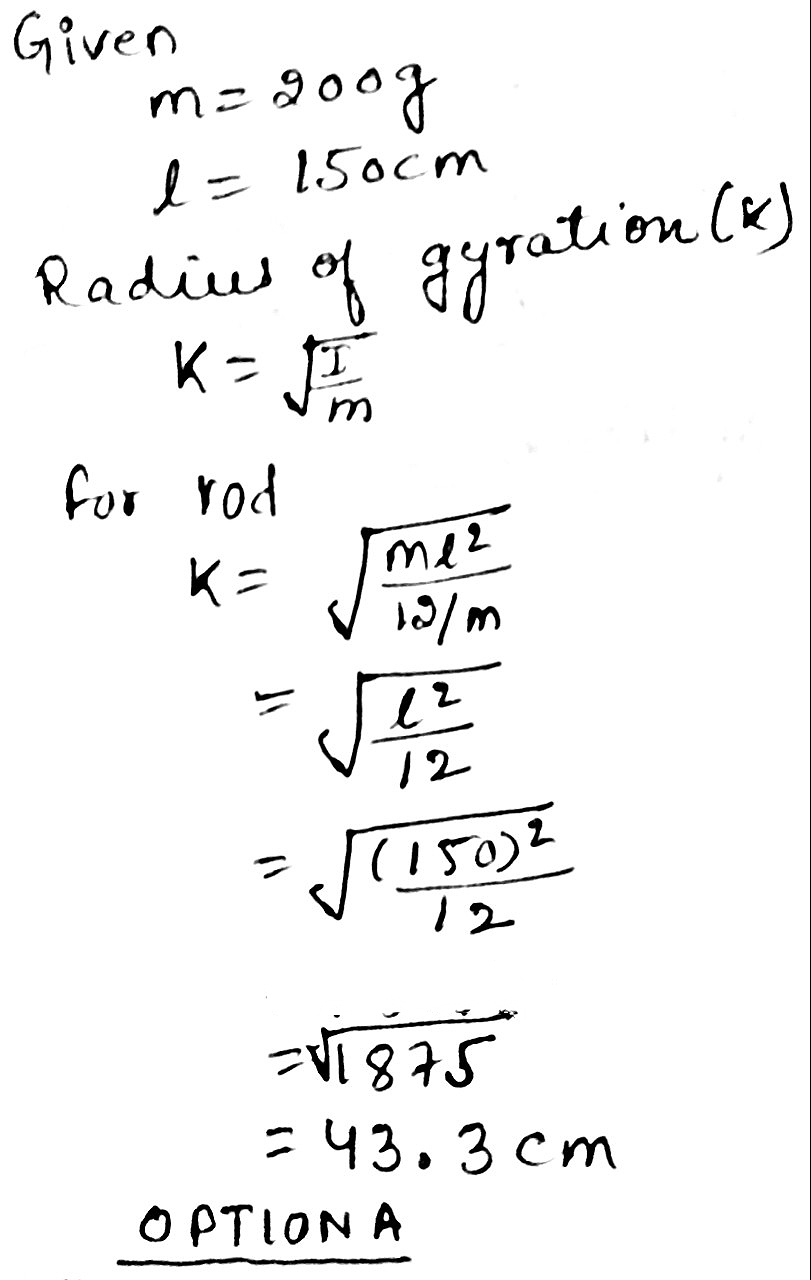 Given
m = 200g
l = 150cm
Radius of gyration (K)
K = √(I/m)
for rod
K = √(ml²/12/m)
= √(l²/12)
= √((150)²/12)
= √1875
= 43.3 cm
OPTION A